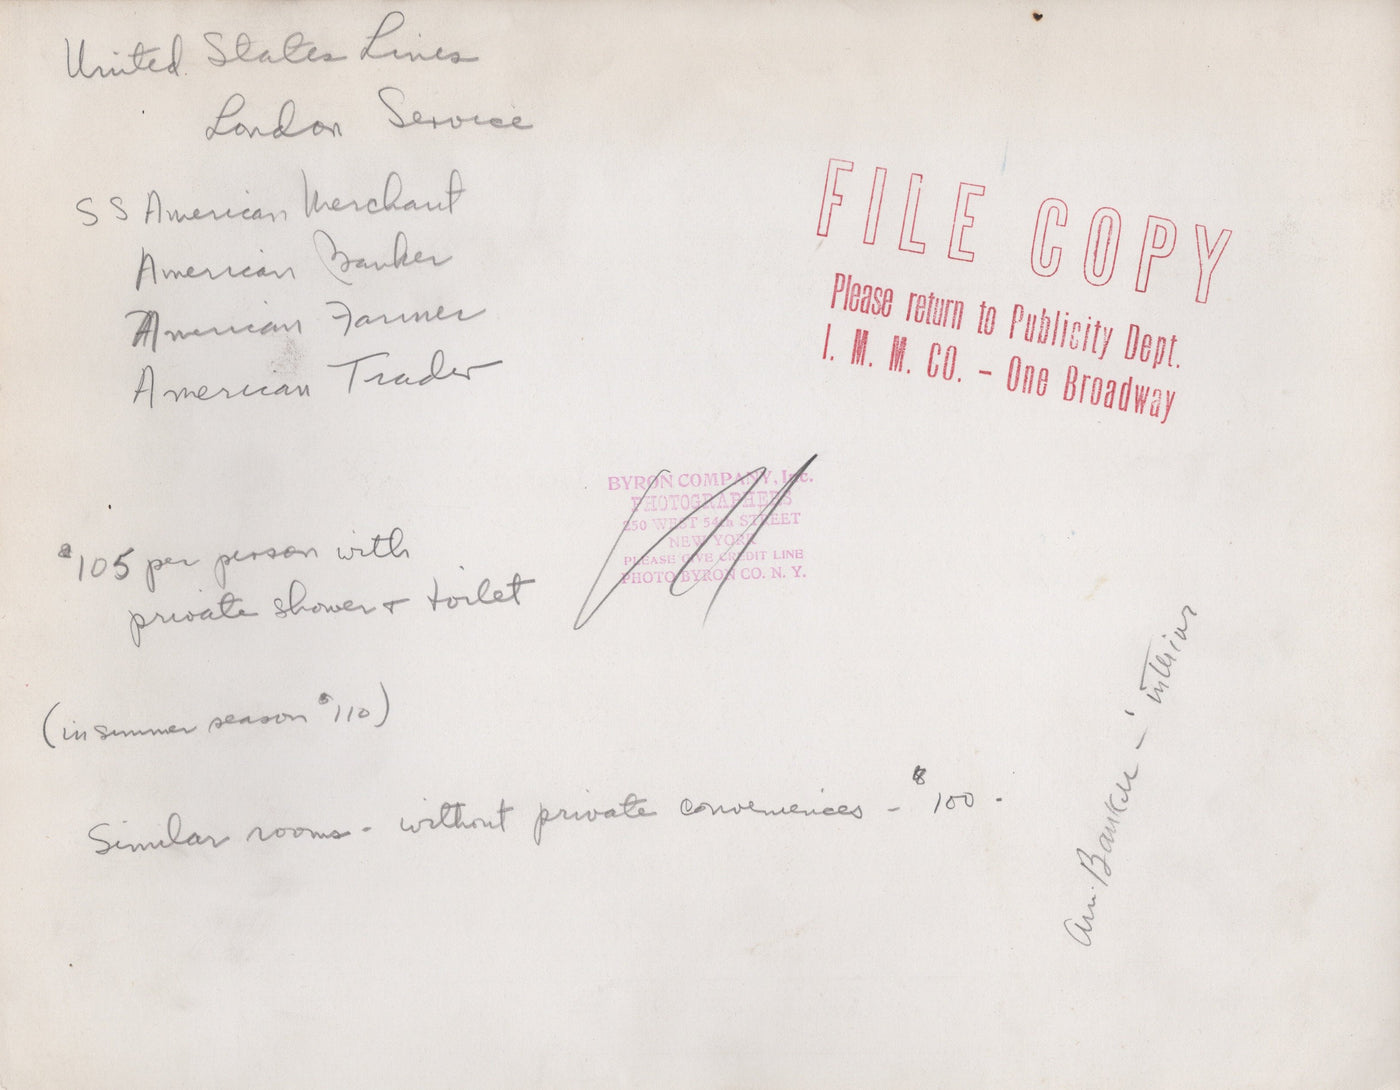 United States Lines
London Service
SS American Merchant
American Banker
American Farmer
American Trader
FILE COPY
Please return to Publicity Dept.
I. M. M. CO. - One Broadway
BYRON COMPANY, Inc.
PHOTOGRAPHERS
250 WEST 54th STREET
NEW YORK
PLEASE GIVE CREDIT LINE
PHOTO BYRON CO. N. Y.
$105 per person with
private shower + toilet
(in summer season $110)
Similar rooms - without private conveniences - $100 -
Am. Banker - interior